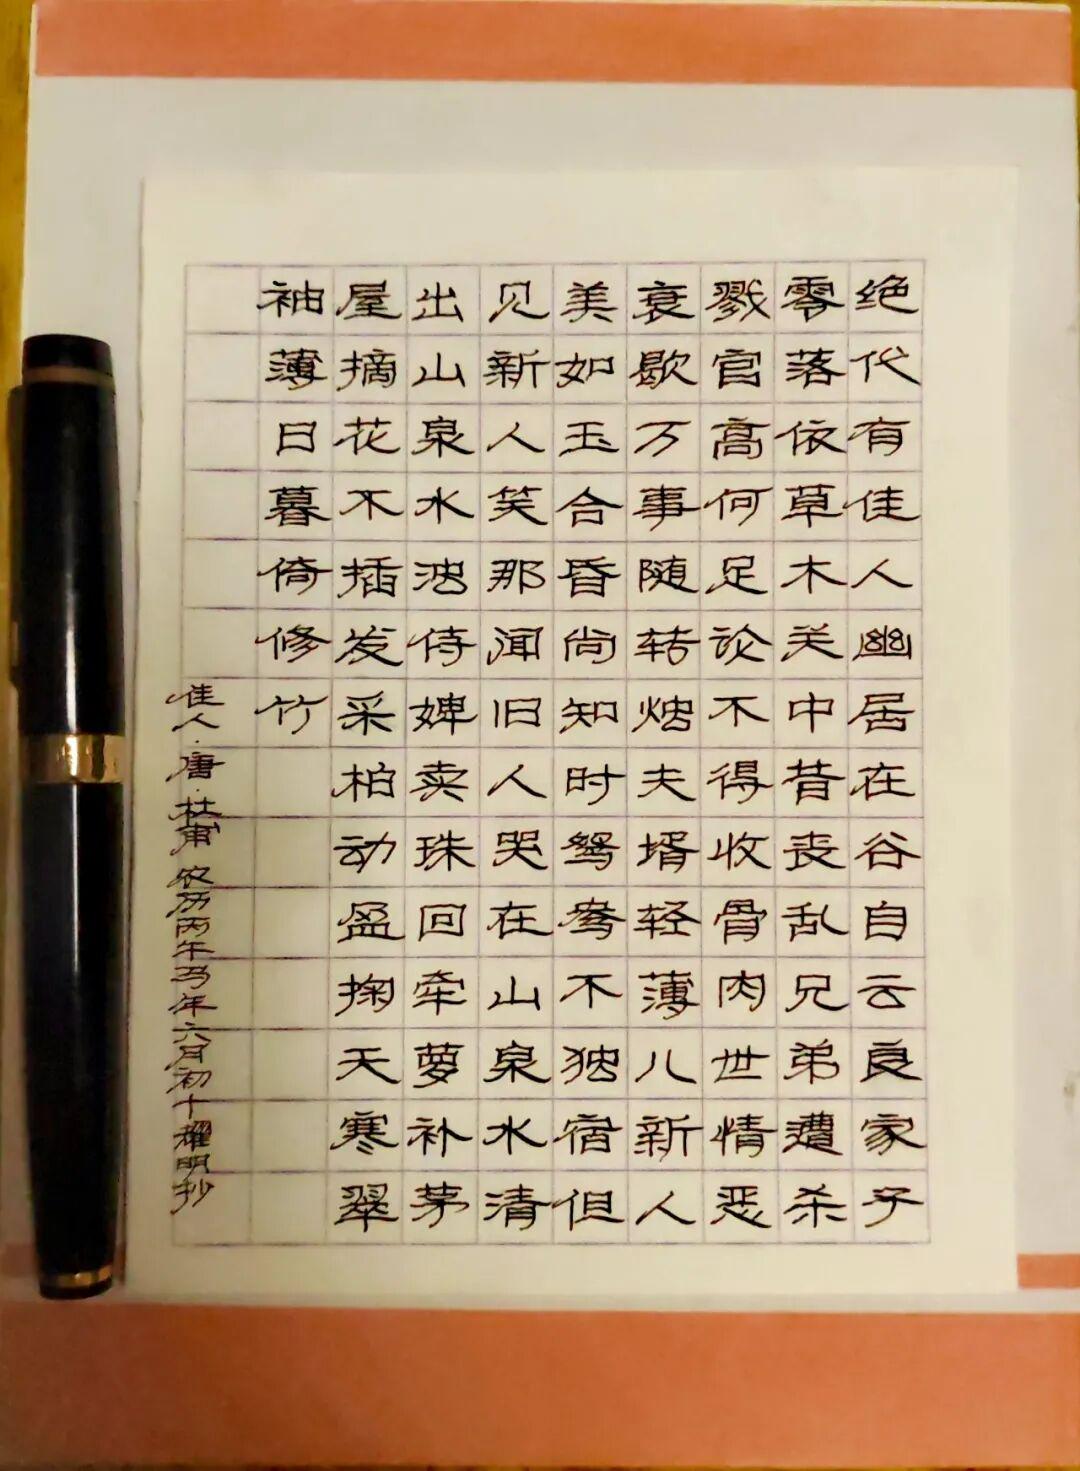 绝代有佳人幽居在谷自云良家子
零落依草木关中昔丧乱兄弟遭杀
戮官高何足论不得收骨肉世情恶
衰歇万事随转烛夫婿轻薄儿新人
美如玉合昏尚知时鸳鸯不独宿但
见新人笑那闻旧人哭在山泉水清
出山泉水浊侍婢卖珠回牵萝补茅
屋摘花不插发采柏动盈掬天寒翠
袖薄日暮倚修竹
佳人·唐·杜甫 农历丙午马年六月初十耀明抄